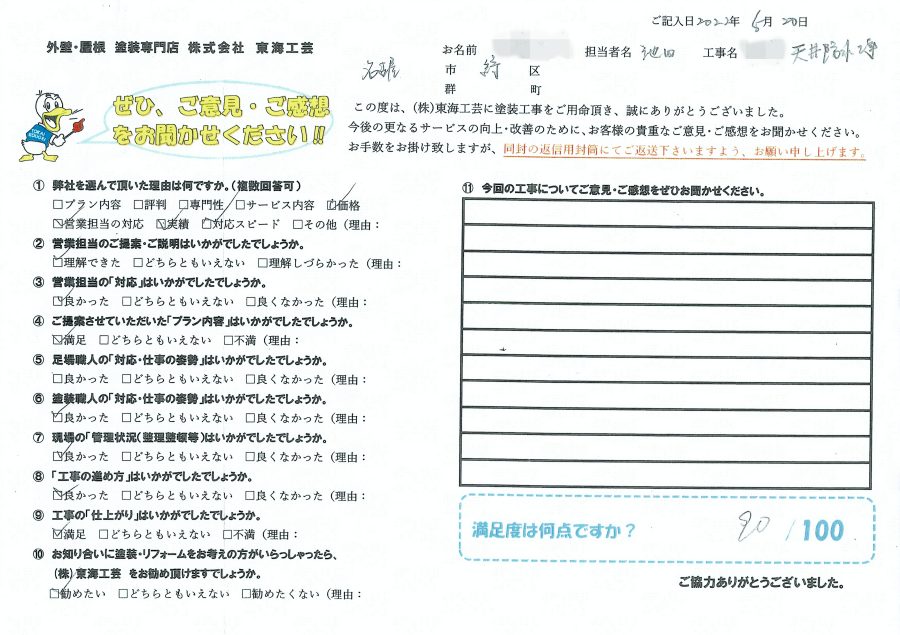 ご記入日2022年 5月 20日
外壁・屋根 塗装専門店 株式会社 東海工芸
お名前 担当者名 池田 工事名 天井防水工事
名古屋 市 緑 区
郡 町
ぜひ、ご意見・ご感想
をお聞かせください!!
この度は、(株)東海工芸に塗装工事をご用命頂き、誠にありがとうございました。
今後の更なるサービスの向上・改善のために、お客様の貴重なご意見・ご感想をお聞かせください。
お手数をお掛け致しますが、同封の返信用封筒にてご返送下さいますよう、お願い申し上げます。
① 弊社を選んで頂いた理由は何ですか。(複数回答可)
□プラン内容 □評判 □専門性 □サービス内容 ☑価格
☑営業担当の対応 ☑実績 ☑対応スピード □その他(理由:
② 営業担当のご提案・ご説明はいかがでしたでしょうか。
☑理解できた □どちらともいえない □理解しづらかった(理由:
③ 営業担当の「対応」はいかがでしたでしょうか。
☑良かった □どちらともいえない □良くなかった(理由:
④ ご提案させていただいた「プラン内容」はいかがでしたでしょうか。
☑満足 □どちらともいえない □不満(理由:
⑤ 足場職人の「対応・仕事の姿勢」はいかがでしたでしょうか。
□良かった □どちらともいえない □良くなかった(理由:
⑥ 塗装職人の「対応・仕事の姿勢」はいかがでしたでしょうか。
☑良かった □どちらともいえない □良くなかった(理由:
⑦ 現場の「管理状況(整理整頓等)はいかがでしたでしょうか。
☑良かった □どちらともいえない □良くなかった(理由:
⑧ 「工事の進め方」はいかがでしたでしょうか。
☑良かった □どちらともいえない □良くなかった(理由:
⑨ 工事の「仕上がり」はいかがでしたでしょうか。
☑満足 □どちらともいえない □不満(理由:
⑩ お知り合いに塗装・リフォームをお考えの方がいらっしゃったら、
(株)東海工芸 をお勧め頂けますでしょうか。
☑勧めたい □どちらともいえない □勧めたくない(理由:
⑪ 今回の工事についてご意見・ご感想をぜひお聞かせください。
満足度は何点ですか? 90 /100
ご協力ありがとうございました。